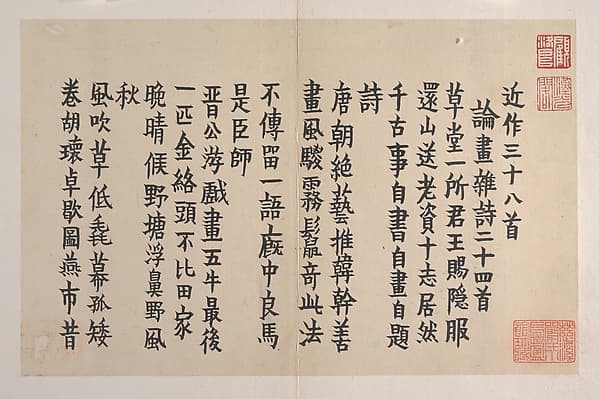 近作三十八首
論畫雜詩二十四首
草堂一所君王賜隱服
還山送老資十志居然
千古事自書自畫自題
詩
唐朝絕藝推韓幹善
畫風駿霧鬣奇此法
不傳留一語廄中良馬
是臣師
晋公游戲畫五牛最後
一匹金絡頭不比田家
晚晴候野塘浮鼻野風
秋
風吹草低毳幕孤矮
卷胡瓌卓歇圖燕市昔